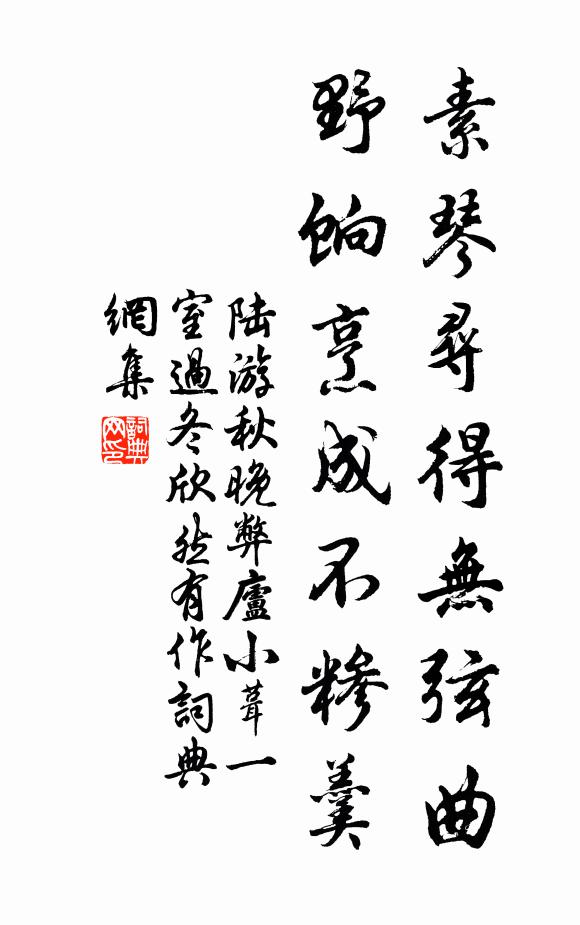 素琴尋得無弦曲
野餉烹成不糝羹
陸游秋晚弊廬小葺一
室過冬欣然有作詞典
網集
詞典网印